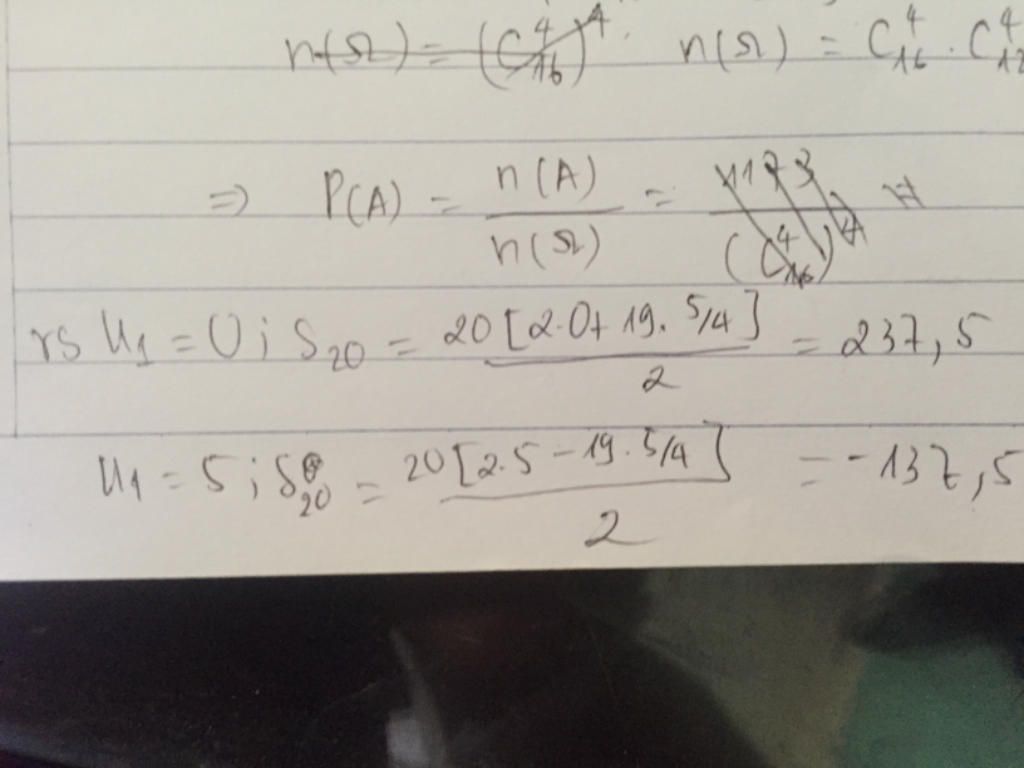 n(Ω) = (C⁴₁₆)⁴. n(Ω) = C⁴₁₆ . C⁴₁₂
⇒ P(A) = n(A) / n(Ω) = / (C⁴₁₆)
rs U₁ = 0 ; S₂₀ = 20[2.0+19.5/4] / 2 = 237,5
U₁ = 5 ; S₂₀ = 20[2.5-19.5/4] / 2 = -137,5